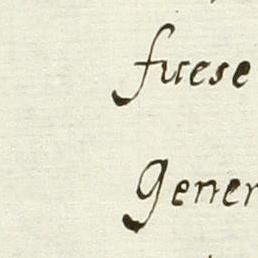 fuese
gener